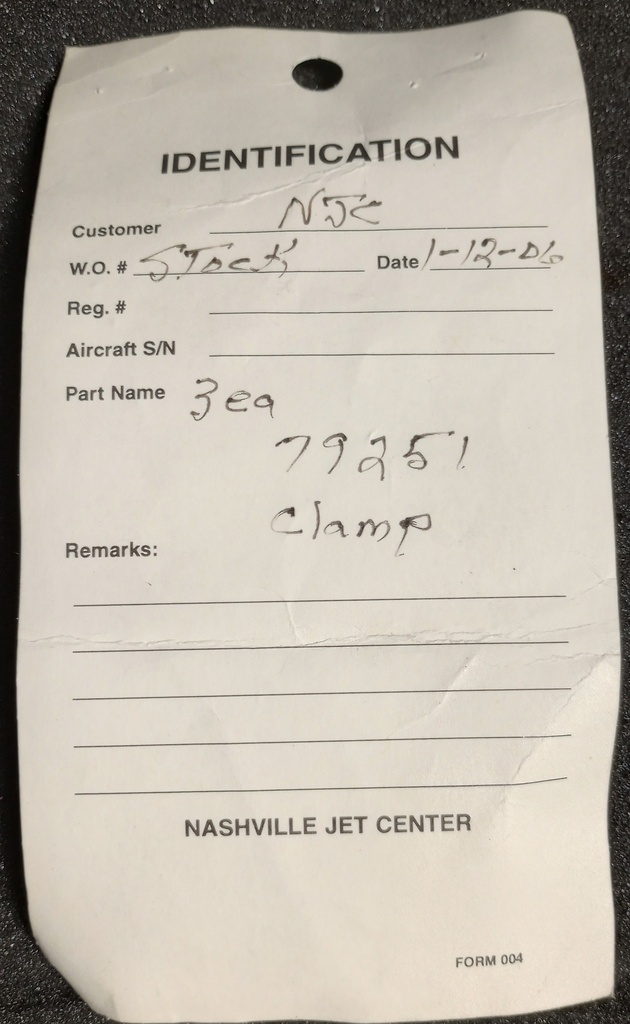 IDENTIFICATION
Customer NJC
W.O. # STock Date 1-12-06
Reg. #
Aircraft S/N
Part Name 3 ea
79251
Clamp
Remarks:
NASHVILLE JET CENTER
FORM 004